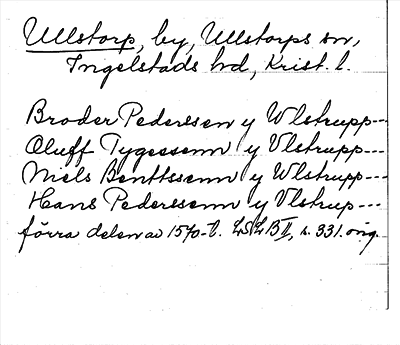 Ullstorp, by, Ullstorps sn,
Ingelstads hd, Krist. l.
Broder Pedersen y Wlstrupp---
Oluff Tygessenn y Vlstrupp---
Niels Benttssenn y Wlstrupp---
Hans Pederssenn y Vlstrup---
förra delen av 1570-t. LSLB II, s. 331. orig.